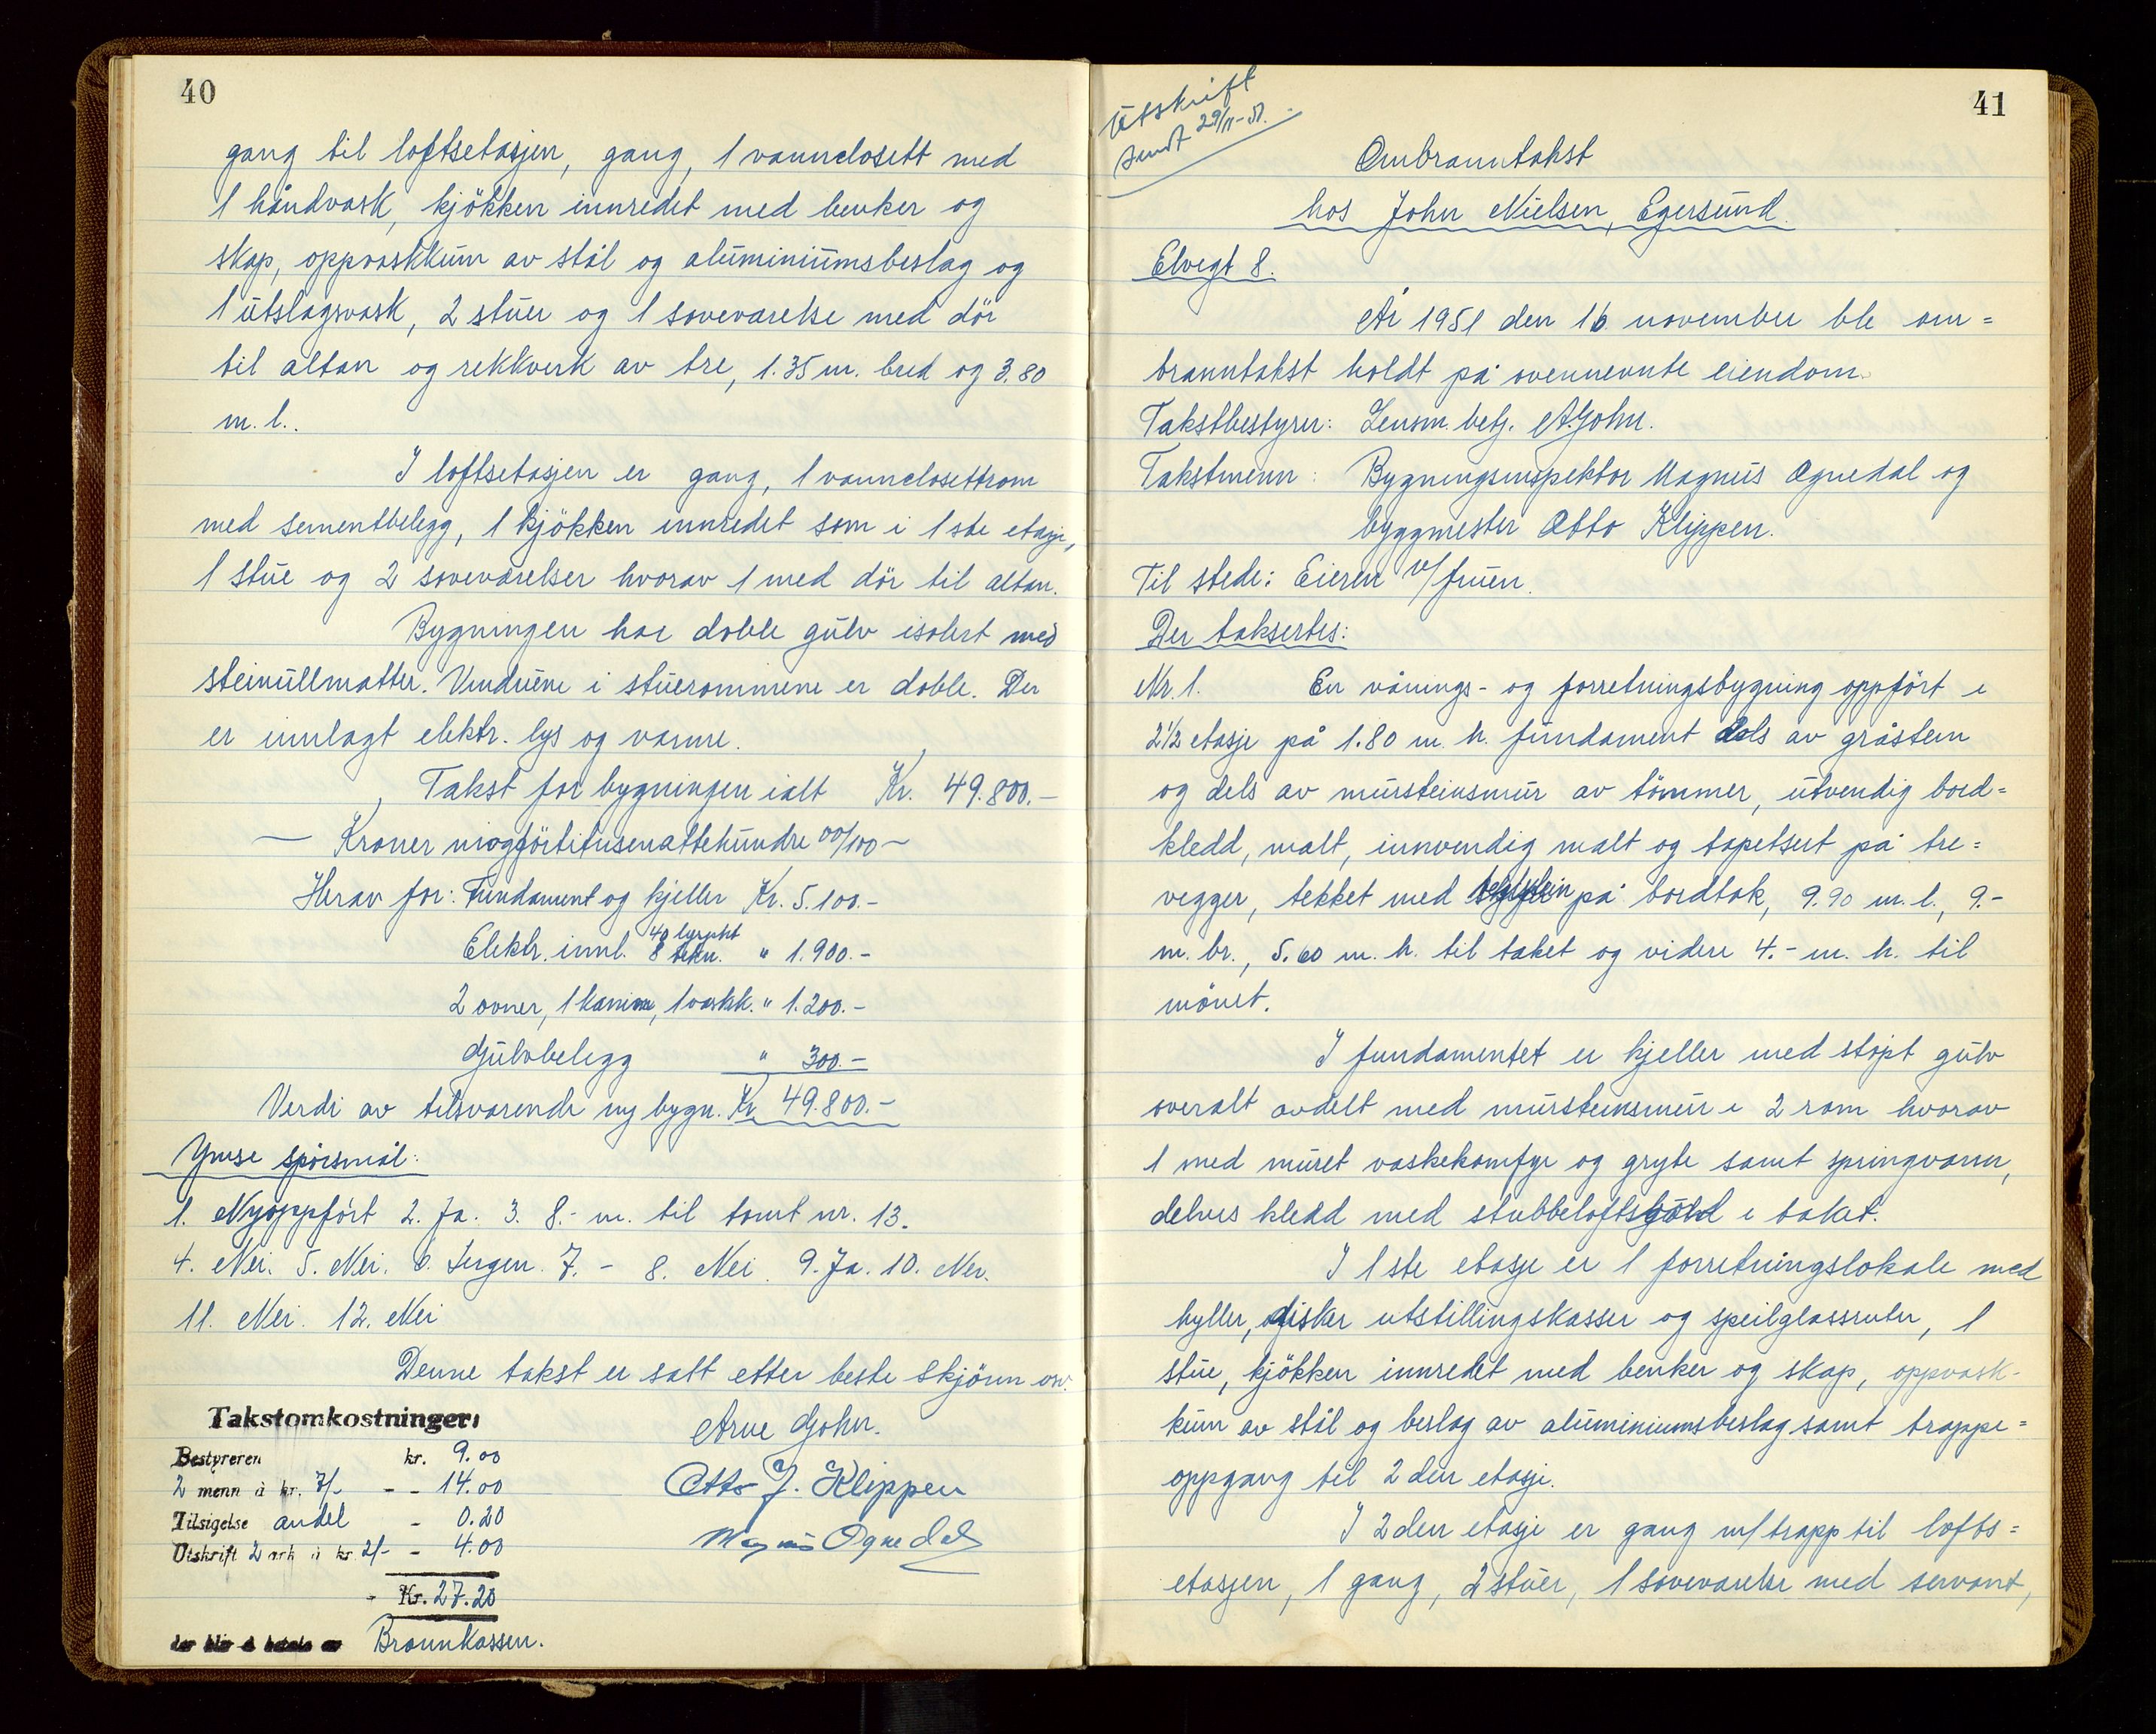 40
gang til loftsetasjen, gang, 1 vannclosett med
1 håndvask, kjökken innredet med benker og
skap, oppvaskkum av stål og aluminiumsbeslag og
1 utslagsvask, 2 stuer og 1 soveværelse med dör
til altan og rekkverk av tre, 1.35 m. bred og 3.80
m. l..
I loftsetasjen er gang, 1 vannclosettrom
med sementbelegg, 1 kjökken innredet som i 1ste etasje,
1 stue og 2 soveværelser hvorav 1 med dör til altan.
Bygningen har doble gulv isolert med
steinullmatter. Vinduene i stuerommene er doble. Der
er innlagt elektr. lys og varme.
Takst for bygningen ialt Kr. 49.800.–
– Kroner niogförtitusenåttehundre 00/100 –
Herav for: Fundament og kjeller Kr. 5.100.–
40 lyspkt
Elektr. innl. 8 tekn. " 1.900.–
2 ovner, 1 kamin, 1 vaskk. " 1.200.–
Gulvbelegg " 300.–
Verdi av tilsvarende ny bygn. Kr 49.800.–
Ymse spörsmål:
1. Nyoppfört 2. Ja. 3. 8.– m. til tomt nr. 13.
4. Nei. 5. Nei. 6. Ingen. 7. – 8. Nei. 9. Ja. 10. Nei.
11. Nei. 12. Nei
Denne takst er satt etter beste skjönn osv.
Takstomkostninger:
Bestyreren kr. 9.00
2 menn à kr. 7/- - - 14.00
Tilsigelse andel - 0.20
Utskrift 2 ark à kr. 2/- - 4.00
Kr. 27.20
Brannkassen.
Arne Gjohn.
Otto J. Klippen
Magnus Ognedal
41
Utskrift
sendt 29/11-51.
Ombranntakst
hos John Nielsen, Egersund.
Elvegt 8.
År 1951 den 16 november ble om=
branntakst holdt på ovennevnte eiendom.
Takstbestyrer: Lensm. betj. A. Gjohn.
Takstmenn: Bygningsinspektör Magnus Ognedal og
byggmester Otto Klippen.
Til stede: Eieren v/fruen.
Der taksertes:
Nr. 1. En vånings- og forretningsbygning oppfört i
2 1/2 etasje på 1.80 m. h. fundament dels av gråstein
og dels av mursteinsmur av tömmer, utvendig bord=
kledd, malt, innvendig malt og tapetsert på tre=
vegger, tekket med teglstein på bordtak, 9.90 m. l., 9.–
m. br., 5.60 m. h. til taket og videre 4.– m. h. til
mönet.
I fundamentet er kjeller med stöpt gulv
overalt avdelt med mursteinsmur i 2 rom hvorav
1 med muret vaskekomfyr og gryte samt springvann,
delvis kledd med stubbeloftsbord i taket.
I 1ste etasje er 1 forretningslokale med
hyller, disker utstillingskasser og speilglassruter, 1
stue, kjökken innredet med benker og skap, oppvask-
kum av stål og beslag av aluminiumsbeslag samt trappe=
oppgang til 2den etasje.
I 2den etasje er gang m/trapp til lofts=
etasjen, 1 gang, 2 stuer, 1 soveværelse med servant,